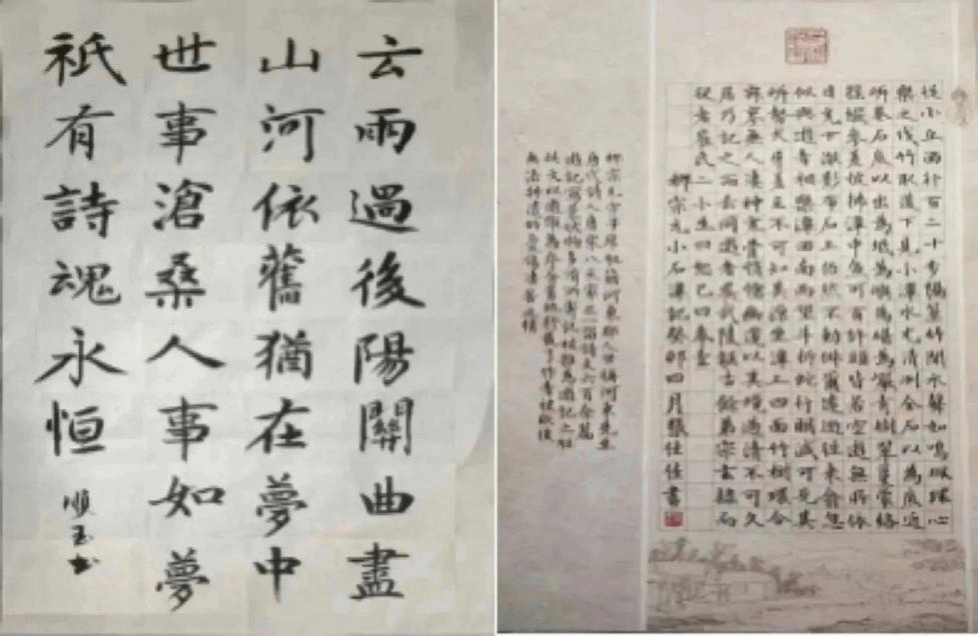 云雨過後陽關曲盡
山河依舊猶在夢中
世事滄桑人事如夢
祇有詩魂永恒
順玉书
從小丘西行百二十步隔篁竹聞水聲如鳴珮環心
樂之伐竹取道下見小潭水尤清冽全石以為底近
岸卷石底以出為坻為嶼為嵁為巖青樹翠蔓蒙絡
搖綴參差披拂潭中魚可百許頭皆若空遊無所依
日光下澈影布石上佁然不動俶爾遠逝往來翕忽
似與遊者相樂潭西南而望斗折蛇行明滅可見其
岸勢犬牙差互不可知其源坐潭上四面竹樹環合
寂寥無人淒神寒骨悄愴幽邃以其境過清不可久
居乃記之而去同遊者吳武陵龔古余弟宗玄隸而
從者崔氏二小生曰恕己曰奉壹
柳宗元小石潭記癸卯四月張仕佳書
柳宗元字子厚祖籍河東郡人世稱河東先生
唐代詩人唐宋八大家之一留詩文六百余篇
遊記寫景狀物多有所寄託被推為遊記之祖